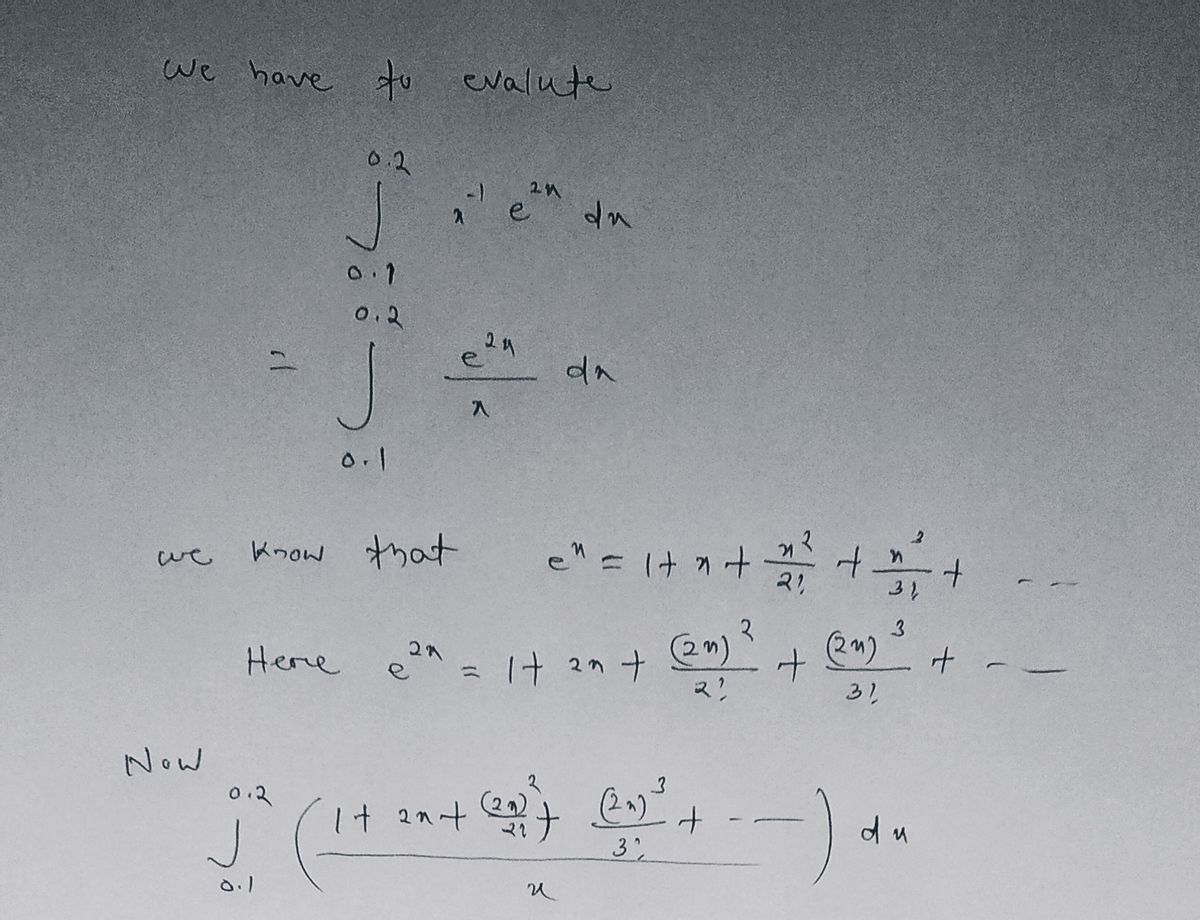 we have to evalute
∫_{0.1}^{0.2} x^{-1} e^{2x} dx
= ∫_{0.1}^{0.2} e^{2x}/x dx
we know that e^x = 1 + x + x^2/2! + x^3/3! + ---
Here e^{2x} = 1 + 2x + (2x)^2/2! + (2x)^3/3! + ---
Now
∫_{0.1}^{0.2} ( (1 + 2x + (2x)^2/2! + (2x)^3/3! + ---)/x ) dx